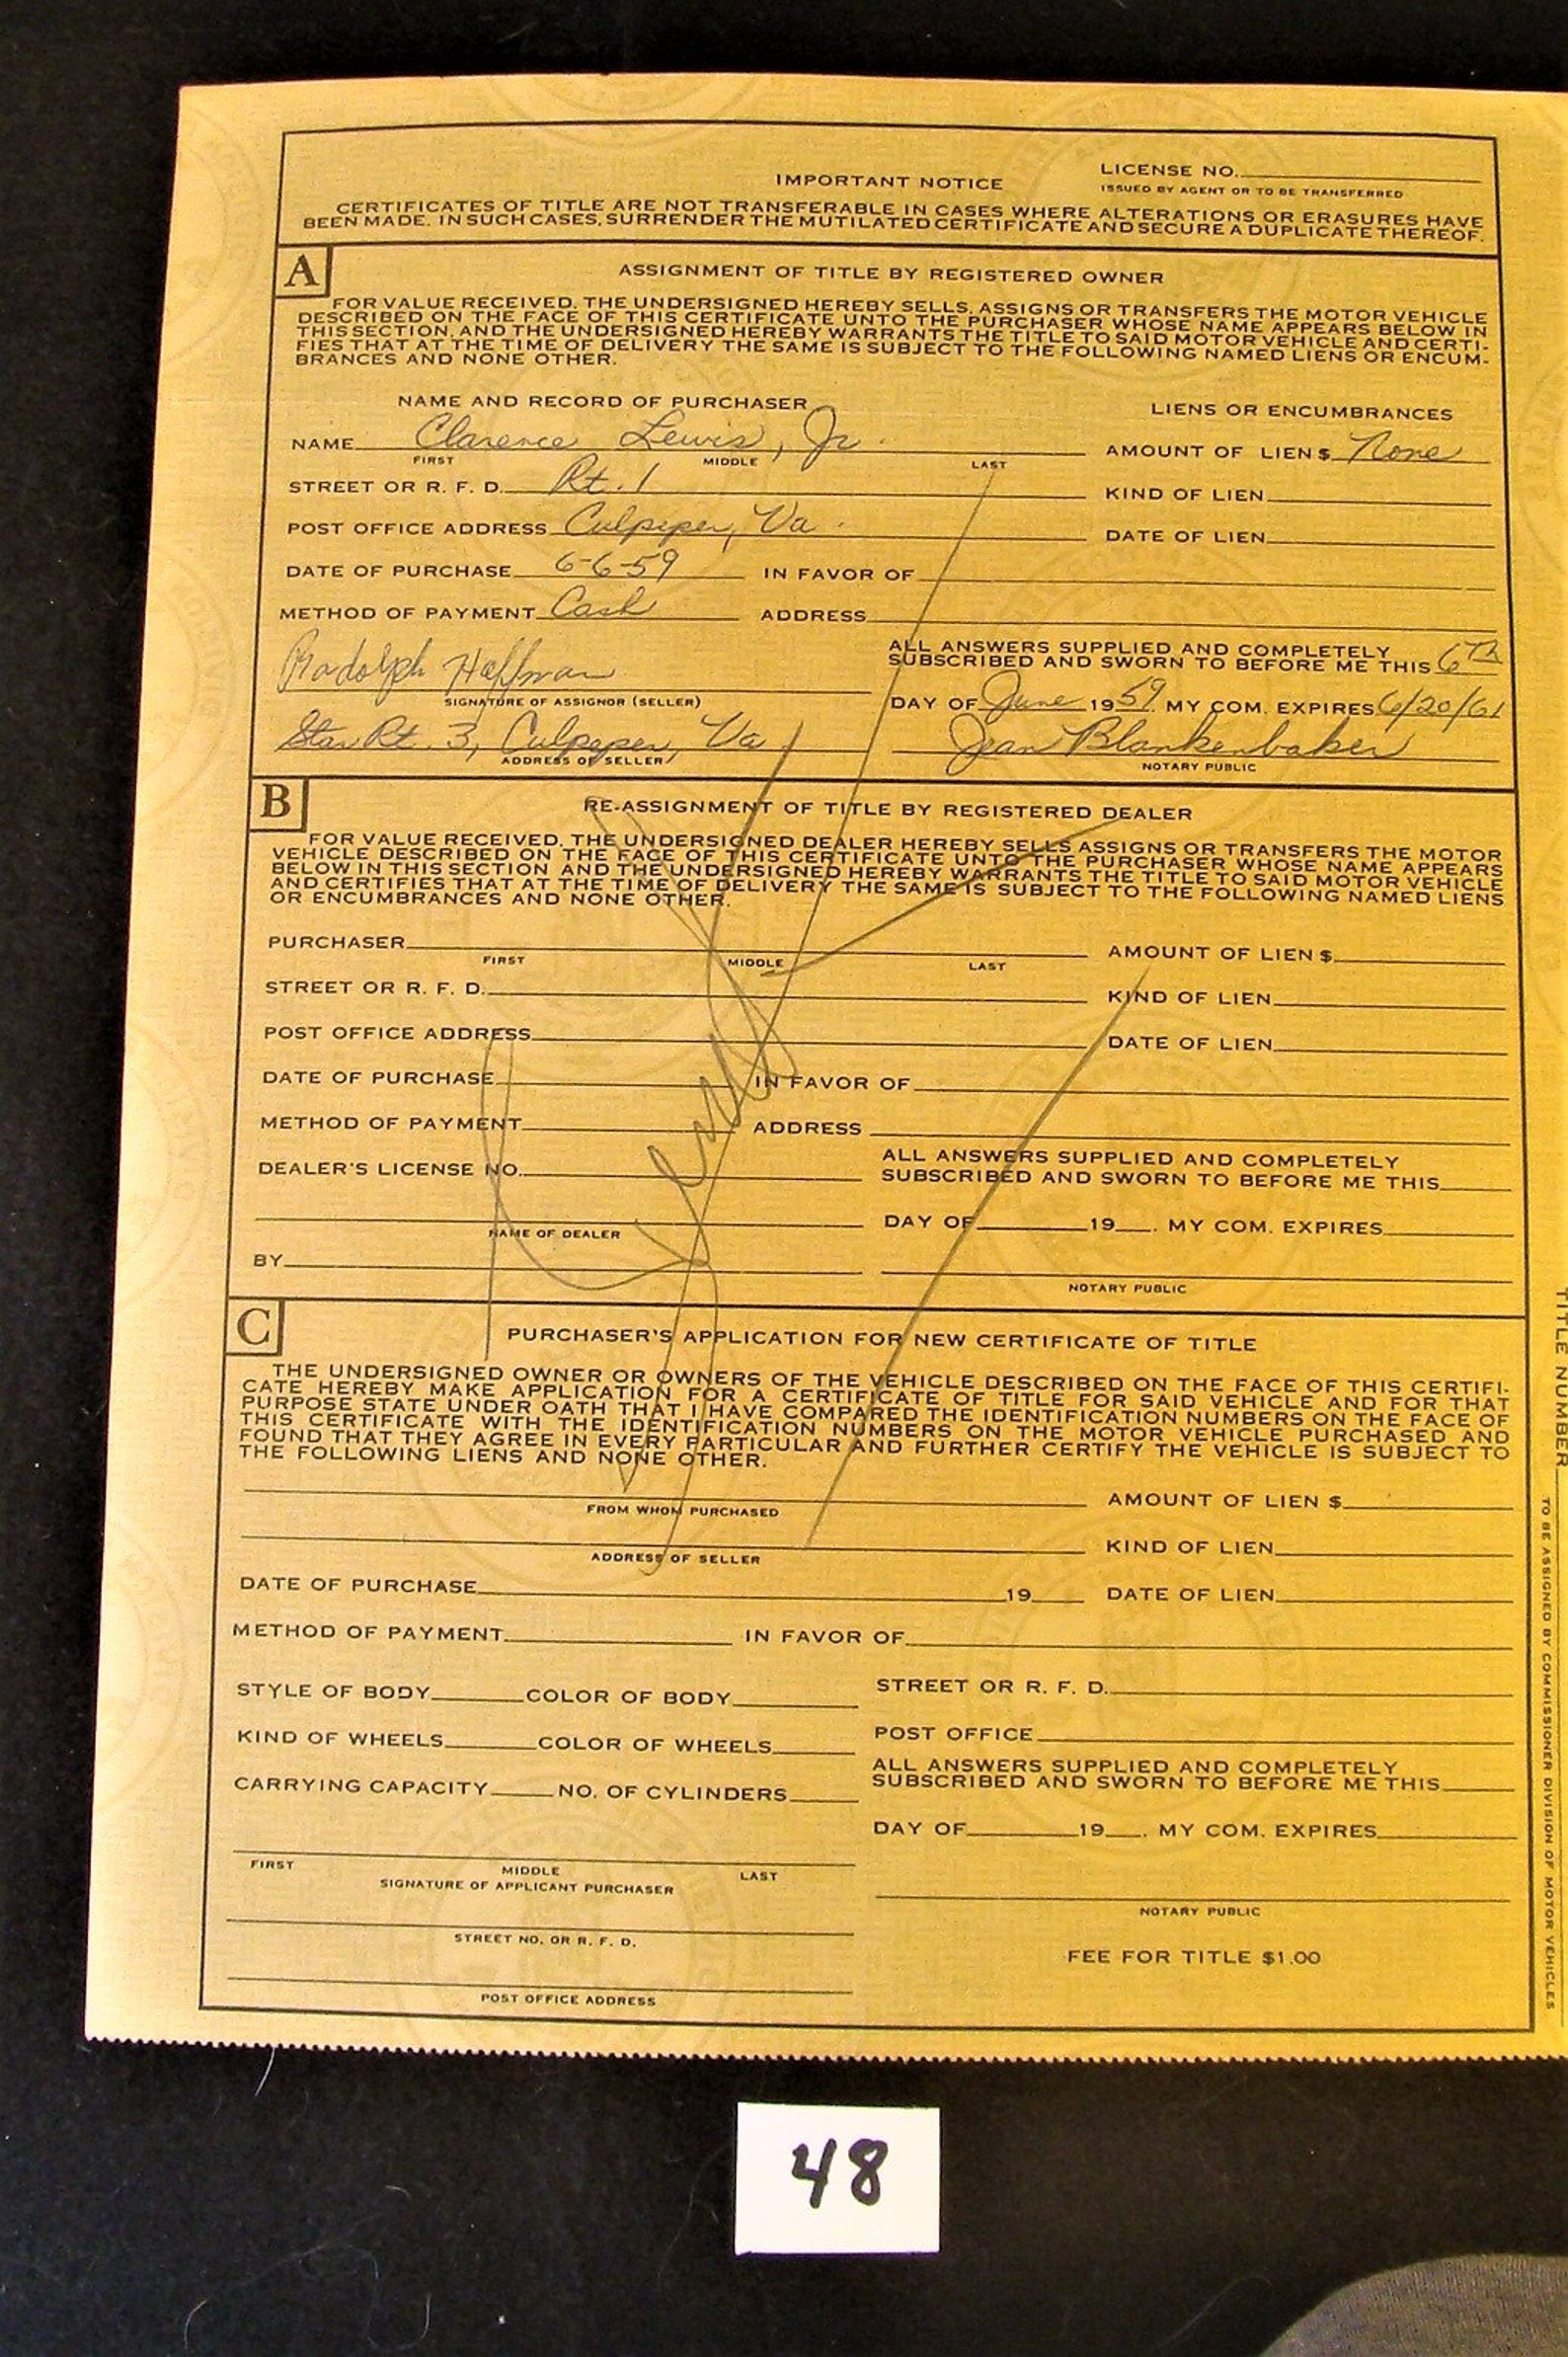 IMPORTANT NOTICE
LICENSE NO.
ISSUED BY AGENT OR TO BE TRANSFERRED
CERTIFICATES OF TITLE ARE NOT TRANSFERABLE IN CASES WHERE ALTERATIONS OR ERASURES HAVE
BEEN MADE. IN SUCH CASES, SURRENDER THE MUTILATED CERTIFICATE AND SECURE A DUPLICATE THEREOF.
A
ASSIGNMENT OF TITLE BY REGISTERED OWNER
FOR VALUE RECEIVED, THE UNDERSIGNED HEREBY SELLS, ASSIGNS OR TRANSFERS THE MOTOR VEHICLE
DESCRIBED ON THE FACE OF THIS CERTIFICATE UNTO THE PURCHASER WHOSE NAME APPEARS BELOW IN
THIS SECTION, AND THE UNDERSIGNED HEREBY WARRANTS THE TITLE TO SAID MOTOR VEHICLE AND CERTI-
FIES THAT AT THE TIME OF DELIVERY THE SAME IS SUBJECT TO THE FOLLOWING NAMED LIENS OR ENCUM-
BRANCES AND NONE OTHER.
NAME AND RECORD OF PURCHASER
LIENS OR ENCUMBRANCES
NAME Clarence Lewis, Jr.
AMOUNT OF LIEN $ None
FIRST MIDDLE LAST
STREET OR R. F. D. Rt. 1
KIND OF LIEN
POST OFFICE ADDRESS Culpeper, Va.
DATE OF LIEN
DATE OF PURCHASE 6-6-59 IN FAVOR OF
METHOD OF PAYMENT Cash ADDRESS
Rudolph Hoffman
ALL ANSWERS SUPPLIED AND COMPLETELY
SUBSCRIBED AND SWORN TO BEFORE ME THIS 6th
SIGNATURE OF ASSIGNOR (SELLER)
DAY OF June 1959. MY COM. EXPIRES 6/20/61
Star Rt. 3, Culpeper, Va
Jean Blankenbaker
ADDRESS OF SELLER
NOTARY PUBLIC
B
RE-ASSIGNMENT OF TITLE BY REGISTERED DEALER
FOR VALUE RECEIVED, THE UNDERSIGNED DEALER HEREBY SELLS ASSIGNS OR TRANSFERS THE MOTOR
VEHICLE DESCRIBED ON THE FACE OF THIS CERTIFICATE UNTO THE PURCHASER WHOSE NAME APPEARS
BELOW IN THIS SECTION AND THE UNDERSIGNED HEREBY WARRANTS THE TITLE TO SAID MOTOR VEHICLE
AND CERTIFIES THAT AT THE TIME OF DELIVERY THE SAME IS SUBJECT TO THE FOLLOWING NAMED LIENS
OR ENCUMBRANCES AND NONE OTHER.
PURCHASER
AMOUNT OF LIEN $
FIRST MIDDLE LAST
STREET OR R. F. D.
KIND OF LIEN
POST OFFICE ADDRESS
DATE OF LIEN
DATE OF PURCHASE IN FAVOR OF
METHOD OF PAYMENT ADDRESS
DEALER'S LICENSE NO.
ALL ANSWERS SUPPLIED AND COMPLETELY
SUBSCRIBED AND SWORN TO BEFORE ME THIS
NAME OF DEALER
DAY OF 19 . MY COM. EXPIRES
BY
NOTARY PUBLIC
C
PURCHASER'S APPLICATION FOR NEW CERTIFICATE OF TITLE
THE UNDERSIGNED OWNER OR OWNERS OF THE VEHICLE DESCRIBED ON THE FACE OF THIS CERTIFI-
CATE HEREBY MAKE APPLICATION FOR A CERTIFICATE OF TITLE FOR SAID VEHICLE AND FOR THAT
PURPOSE STATE UNDER OATH THAT I HAVE COMPARED THE IDENTIFICATION NUMBERS ON THE FACE OF
THIS CERTIFICATE WITH THE IDENTIFICATION NUMBERS ON THE MOTOR VEHICLE PURCHASED AND
FOUND THAT THEY AGREE IN EVERY PARTICULAR AND FURTHER CERTIFY THE VEHICLE IS SUBJECT TO
THE FOLLOWING LIENS AND NONE OTHER.
AMOUNT OF LIEN $
FROM WHOM PURCHASED
KIND OF LIEN
ADDRESS OF SELLER
DATE OF PURCHASE 19 DATE OF LIEN
METHOD OF PAYMENT IN FAVOR OF
STYLE OF BODY COLOR OF BODY
STREET OR R. F. D.
KIND OF WHEELS COLOR OF WHEELS
POST OFFICE
CARRYING CAPACITY NO. OF CYLINDERS
ALL ANSWERS SUPPLIED AND COMPLETELY
SUBSCRIBED AND SWORN TO BEFORE ME THIS
DAY OF 19 . MY COM. EXPIRES
FIRST MIDDLE LAST
SIGNATURE OF APPLICANT PURCHASER
NOTARY PUBLIC
STREET NO. OR R. F. D.
FEE FOR TITLE $1.00
POST OFFICE ADDRESS
TITLE NUMBER
TO BE ASSIGNED BY COMMISSIONER DIVISION OF MOTOR VEHICLES
48